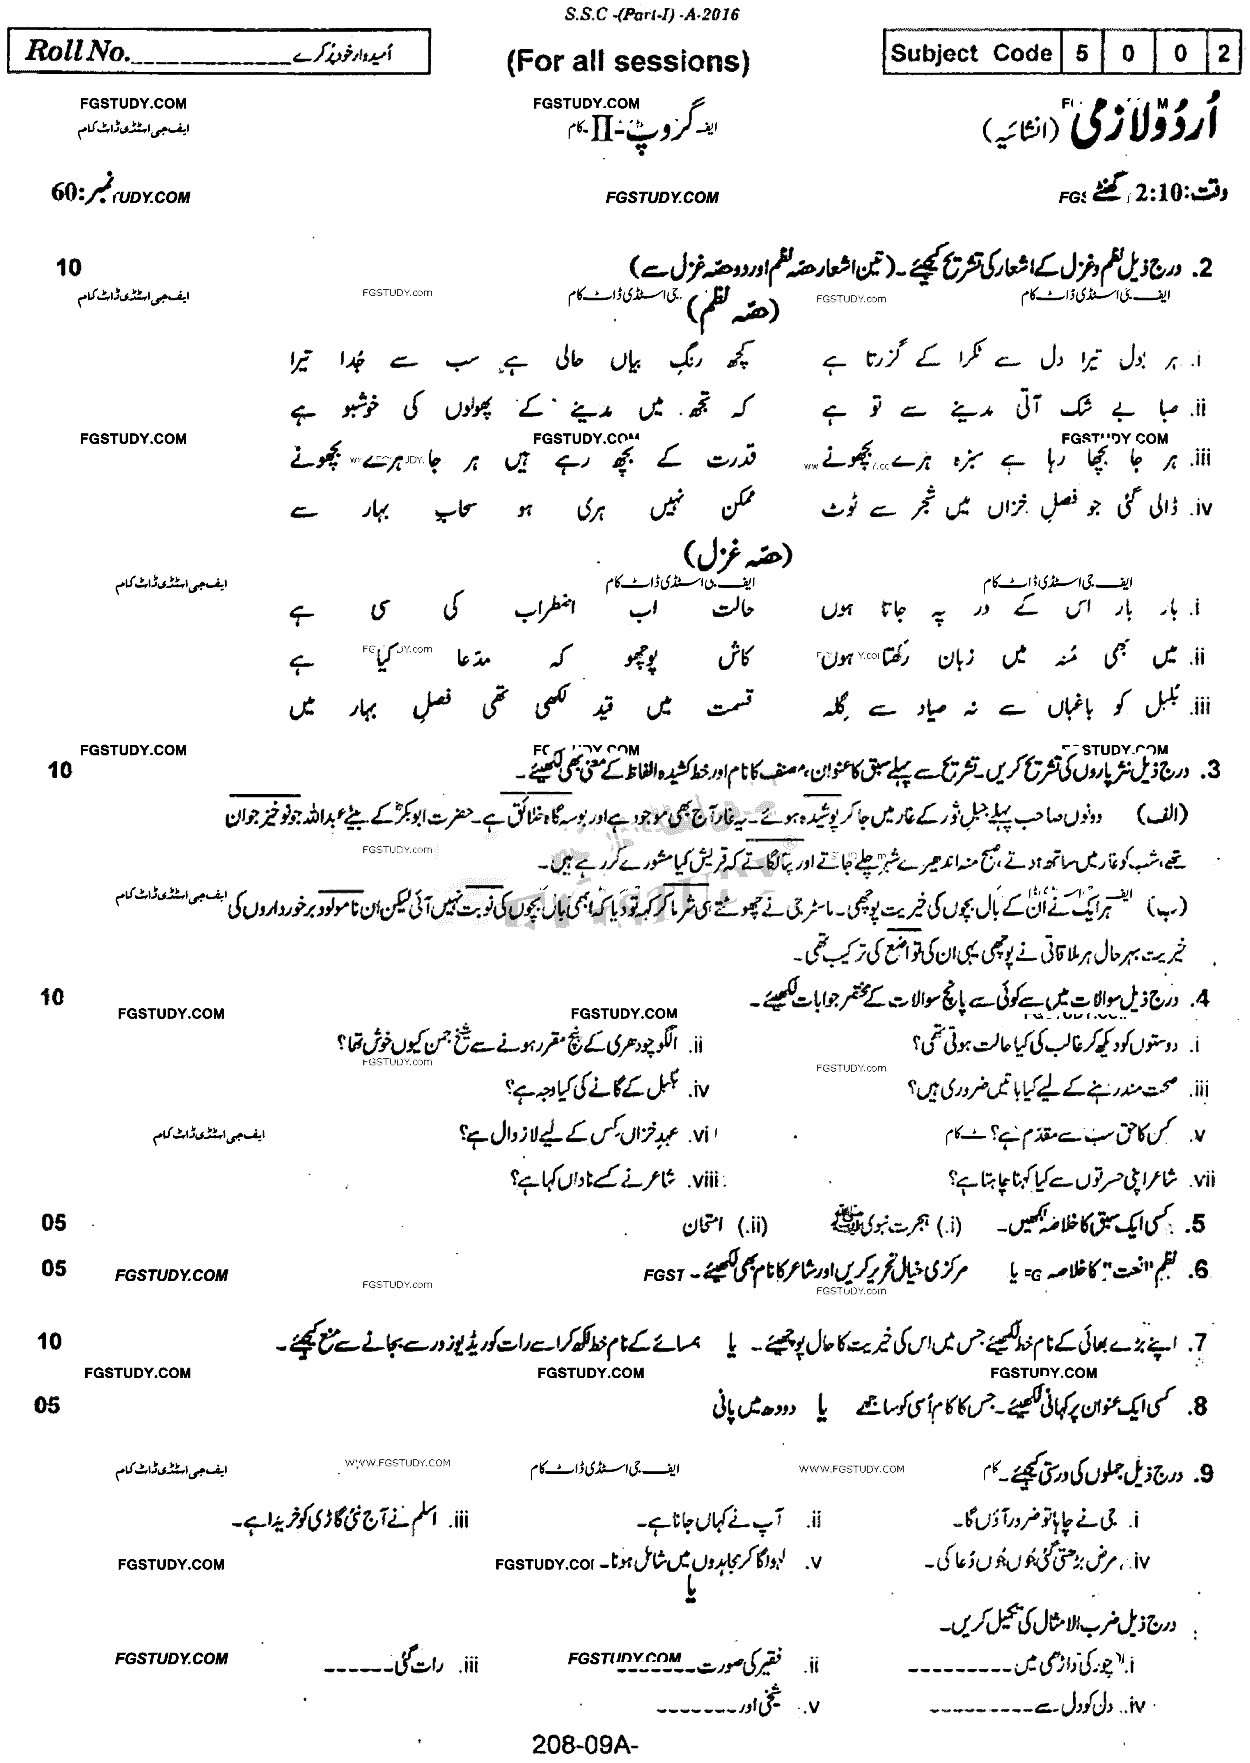 S.S.C -(Part-I) -A-2016
Roll No.______________ امیدوار خود پُر کرے
(For all sessions)
Subject Code 5 0 0 2
FGSTUDY.COM FGSTUDY.COM
اُردُو لازمی (انشائیہ) گروپ-II ایف جی اسٹڈی ڈاٹ کام
وقت: 2:10 گھنٹے FGSTUDY.COM نمبر: 60
2. درج ذیل نظم و غزل کے اشعار کی تشریح کیجئے۔ (تین اشعار حصّہ نظم اور دو حصّہ غزل سے) 10
ایف جی اسٹڈی ڈاٹ کام FGSTUDY.com جی اسٹڈی ڈاٹ کام FGSTUDY.com ایف جی اسٹڈی ڈاٹ کام
(حصّہ نظم)
i. ہر بول تیرا دل سے ٹکرا کے گزرتا ہے کچھ رنگِ بیاں حالی ہے سب سے جُدا تیرا
ii. صبا بے شک آتی مدینے سے تو ہے کہ تجھ میں مدینے کے پھولوں کی خوشبو ہے
FGSTUDY.COM FGSTUDY.COM FGSTUDY.COM
iii. ہر جا بچھا رہا ہے سبزہ ہرے بچھونے قدرت کے بچھ رہے ہیں ہر جا ہرے بچھونے
iv. ڈالی گئی جو فصلِ خزاں میں شجر سے ٹوٹ ممکن نہیں ہری ہو سحابِ بہار سے
(حصّہ غزل)
ایف جی اسٹڈی ڈاٹ کام ایف جی اسٹڈی ڈاٹ کام ایف جی اسٹڈی ڈاٹ کام
i. بار بار اس کے در پہ جاتا ہوں حالت اب اضطراب کی سی ہے
ii. میں بھی مُنہ میں زبان رکھتا ہوں کاش پوچھو کہ مدّعا کیا ہے
iii. بُلبل کو باغباں سے نہ صیاد سے گلہ قسمت میں قید لکھی تھی فصلِ بہار میں
FGSTUDY.COM
3. درج ذیل نثر پاروں کی تشریح کریں۔ تشریح سے پہلے سبق کا عنوان، مصنف کا نام اور خط کشیدہ الفاظ کے معنی بھی لکھئے۔ 10
(الف) دونوں صاحب پہلے جبلِ ثور کے غار میں جا کر پوشیدہ ہوئے۔ یہ غار آج بھی موجود ہے اور بوسہ گاہ خلائق ہے۔ حضرت ابوبکرؓ کے بیٹے عبداللہ جو نوخیز جوان
تھے، شب کو غار میں ساتھ ہوتے، صبح منہ اندھیرے شہر چلے جاتے اور پتا لگاتے کہ قریش کیا مشورے کر رہے ہیں۔
(ب) ہر ایک نے اُن کے بال بچوں کی خیریت پوچھی۔ ماسٹر جی نے چھوٹتے ہی شرما کر کہہ تو دیا کہ ابھی بال بچوں کی نوبت نہیں آئی لیکن ان نامولود برخورداروں کی
خیریت بہرحال ہر ملاقاتی نے پوچھی یہی ان کی تواضع کی ترکیب تھی۔
4. درج ذیل سوالات میں سے کوئی سے پانچ سوالات کے مختصر جوابات لکھیئے۔ 10
FGSTUDY.COM FGSTUDY.COM
i. دوستوں کو دیکھ کر غالب کی کیا حالت ہوتی تھی؟ ii. الگو چودھری کے پنچ مقرر ہونے سے شیخ جمن کیوں خوش تھا؟
FGSTUDY.com FGSTUDY.com
iii. صحت مند رہنے کے لیے کیا باتیں ضروری ہیں؟ iv. بُلبل کے گانے کی کیا وجہ ہے؟
v. کس کا حق سب سے مقدم ہے؟ vi. عہدِ خزاں کس کے لیے لازوال ہے؟ ایف جی اسٹڈی ڈاٹ کام
vii. شاعر اپنی حسرتوں سے کیا کہنا چاہتا ہے؟ viii. شاعر نے کسے ناداں کہا ہے؟
5. کسی ایک سبق کا خلاصہ لکھیں۔ (i.) ہجرت نبوی ﷺ (ii.) امتحان 05
6. نظم "نعت" کا خلاصہ یا مرکزی خیال تحریر کریں اور شاعر کا نام بھی لکھیئے۔ FGSTUDY.COM 05
FGSTUDY.com FGSTUDY.com
7. اپنے بڑے بھائی کے نام خط لکھیئے جس میں اس کی خیریت کا حال پوچھیئے۔ یا ہمسائے کے نام خط لکھ کر اسے رات کو ریڈیو زور سے بجانے سے منع کیجئے۔ 10
FGSTUDY.COM FGSTUDY.COM FGSTUDY.COM
8. کسی ایک عنوان پر کہانی لکھیئے۔ جس کا کام اُسی کو ساجھے یا دودھ میں پانی 05
9. درج ذیل جملوں کی درستی کیجئے۔
WWW.FGSTUDY.COM ایف جی اسٹڈی ڈاٹ کام WWW.FGSTUDY.COM ایف جی اسٹڈی ڈاٹ کام
i. جی نے چاہا تو ضرور آؤں گا۔ ii. آپ نے کہاں جانا ہے۔ iii. اسلم نے آج نئی گاڑی کو خریدا ہے۔
iv. مرض بڑھتی گئی جُوں جُوں دُعا کی۔ v. لہو لگا کر مجاہدوں میں شامل ہونا۔ FGSTUDY.COM
یا
درج ذیل ضرب الامثال کی تکمیل کریں۔
i. چور کی داڑھی میں ---------- ii. فقیر کی صورت ------- iii. رات گئی ------ FGSTUDY.COM
iv. دل کو دل سے ---------- v. شیخی اور -------
208-09A-